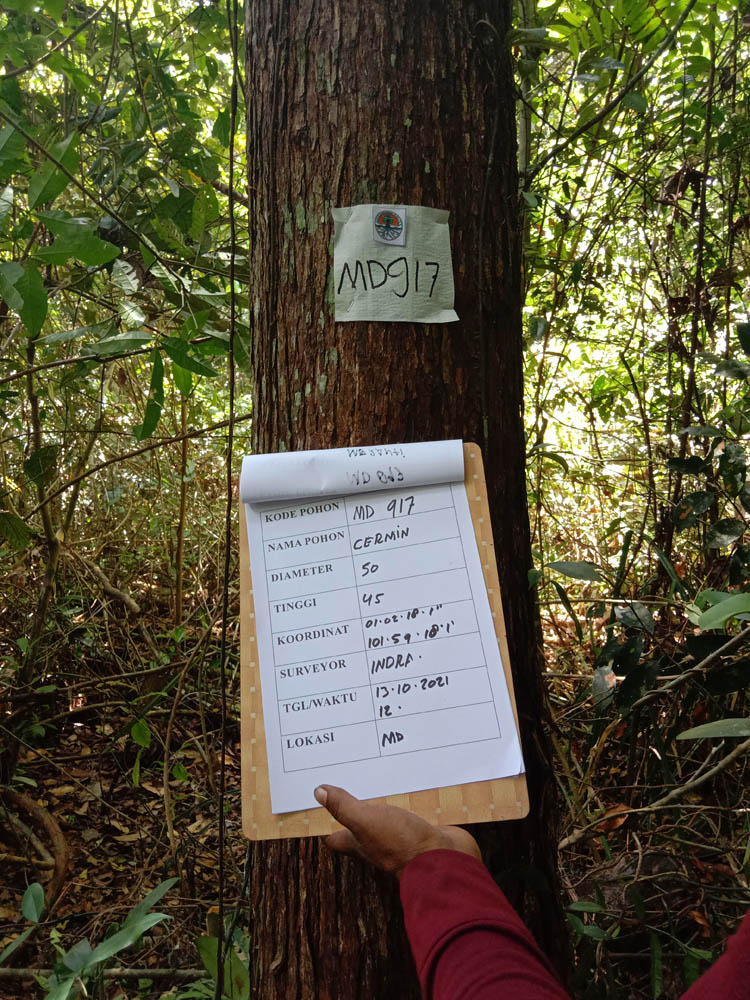 MD917
KODE POHON MD 917
NAMA POHON CERMIN
DIAMETER 50
TINGGI 45
KOORDINAT 01·02·18·1"
101·59·18·1'
SURVEYOR INDRA·
TGL/WAKTU 13·10·2021
12·
LOKASI MD